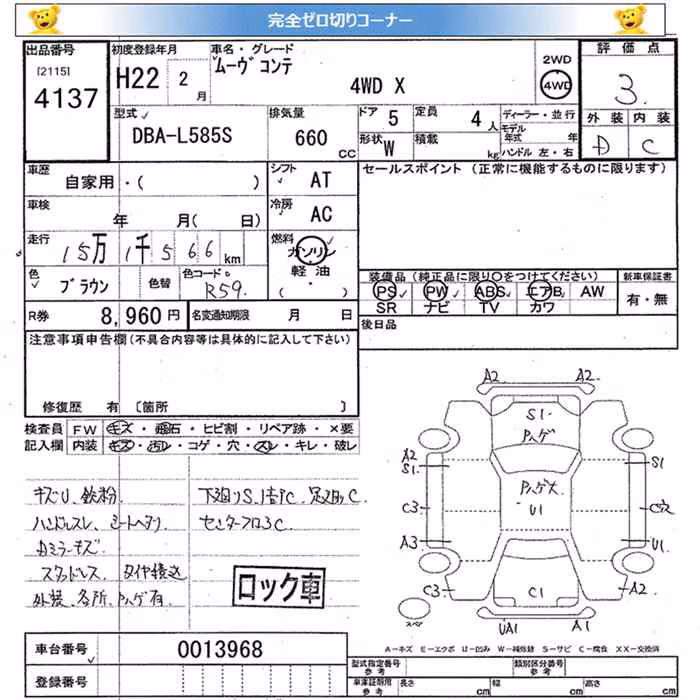 完全ゼロ切りコーナー
出品番号 初度登録年月 車名・グレード 2WD 評価点
[2115] H22 2月 ムーヴ コンテ 4WD
4137 4WD X 3.
型式 排気量 ドア 5 定員 4人 ディーラー・並行 外装 内装
DBA-L585S 660 CC 形状 W 積載 kg モデル年式 年 D C
ハンドル 左・右
車歴 自家用・( ) シフト AT セールスポイント (正常に機能するものに限ります)
車検 年 月( 日) 冷房 AC
走行 15万1千566km 燃料 ガソリン
軽油
・
( )
色 ブラウン 色替 色コード R59. 装備品 (純正品に限り〇をつけてください) 新車保証書
PS PW ABS エアB AW 有・無
SR ナビ TV カワ
R券 8,960円 名変通知期限 月 日 後日品
注意事項申告欄(不具合内容等は具体的に記入して下さい)
修復歴 有〔箇所 〕
検査員 FW キズ・飛石・ヒビ割・リペア跡・×要
記入欄 内装 キズ・汚レ・コゲ・穴・スレ・キレ・破レ
キズU、鉄粉 下廻りS、
ハンドルスレ、シートヘタリ センターフロアC
ミラーキズ
スタッドレス タイヤ積込
外装、各所、ハゲ有
ロック車
A2 A2.
S1
ハゲ
A2
S1. S1
ハゲ大
U1
C3 C2
A3 U1
C3 C1 A2
スペ UA1 A1
A-キズ E-エクボ U-凹み W-補修跡 S-サビ C-腐食 XX-交換済
車台番号 0013968
登録番号
型式指定番号 参考 類別区分番号 参考
車庫証明用 参考 長さ cm 幅 cm 高さ cm